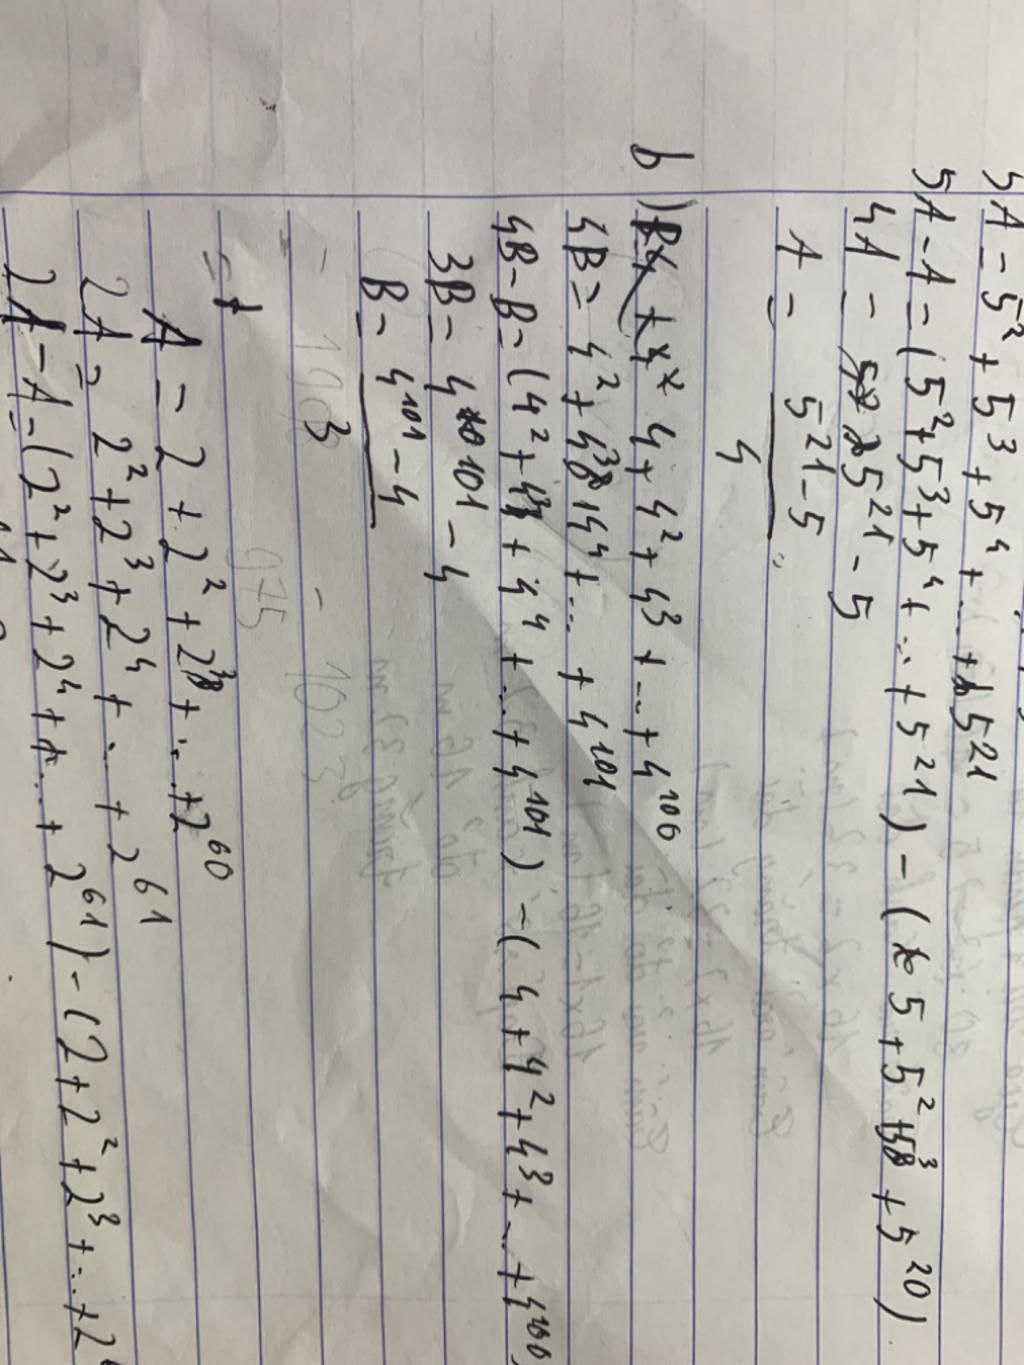 5A = 5² + 5³ + 5⁴ + ... + 5²¹
5A - A = (5² + 5³ + 5⁴ + ... + 5²¹) - (5 + 5² + 5³ + 5²⁰)
4A = 5²¹ - 5
A = 5²¹ - 5
4
b) 4 + 4² + 4³ + ... + 4¹⁰⁰
4B = 4² + 4³ + 4⁴ + ... + 4¹⁰¹
4B - B = (4² + 4³ + 4⁴ + ... + 4¹⁰¹) - (4 + 4² + 4³ + ... + 4¹⁰⁰)
3B = 4¹⁰¹ - 4
B = 4¹⁰¹ - 4
3
A = 2 + 2² + 2³ + ... + 2⁶⁰
2A = 2² + 2³ + 2⁴ + ... + 2⁶¹
2A - A = (2² + 2³ + 2⁴ + ... + 2⁶¹) - (2 + 2² + 2³ + ... + 2